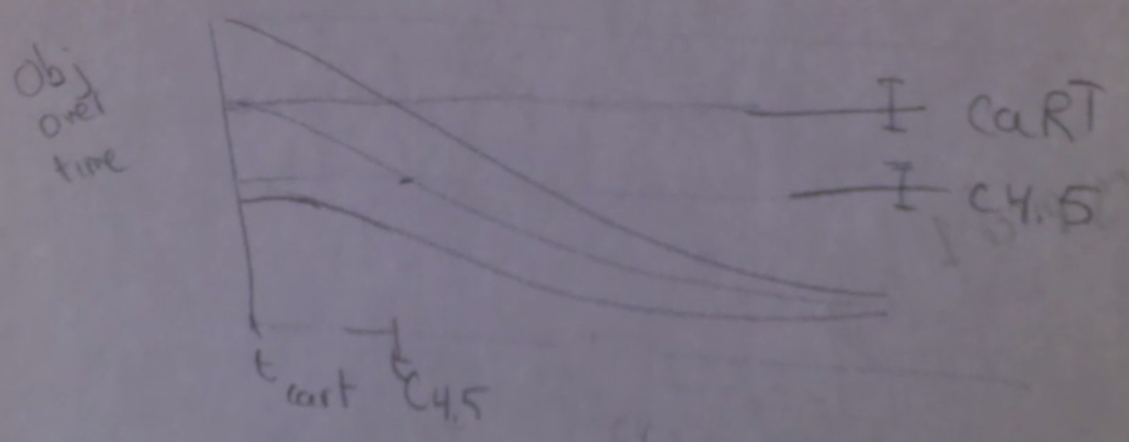 Obj
over
time
CaRT
C4.5
t cart
t C4.5